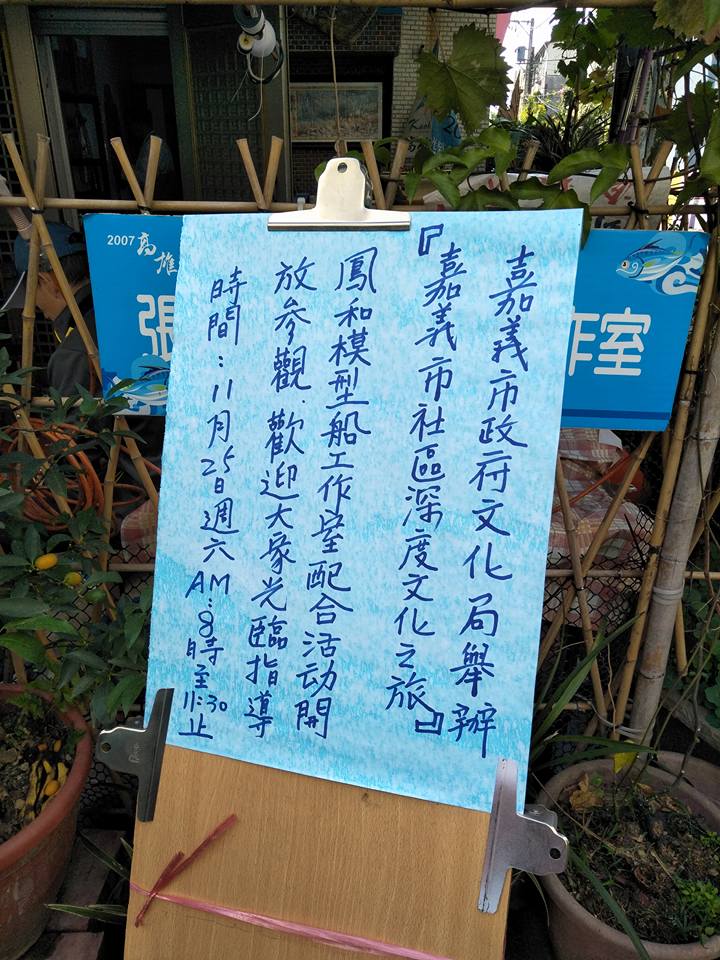 嘉義市政府文化局舉辦
『嘉義市社區深度文化之旅』
鳳和模型船工作室配合活动開
放參觀．歡迎大眾光臨指導
時間：11月25日週六AM：8時至11:30止
2007高雄
張
作室